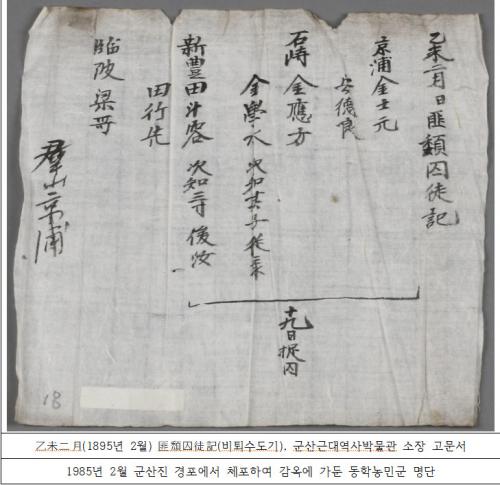 乙未二月日匪類囚徒記
京浦金士元
安德良
石峙金應方
金學水 次知其子從来
新豊田斗容 次知 後汝
田行先
臨陂梁哥
群山京浦
十九日捉囚
18
乙未二月(1895년 2월) 匪類囚徒記(비퇴수도기). 군산근대역사박물관 소장 고문서
1985년 2월 군산진 경포에서 체포하여 감옥에 가둔 동학농민군 명단